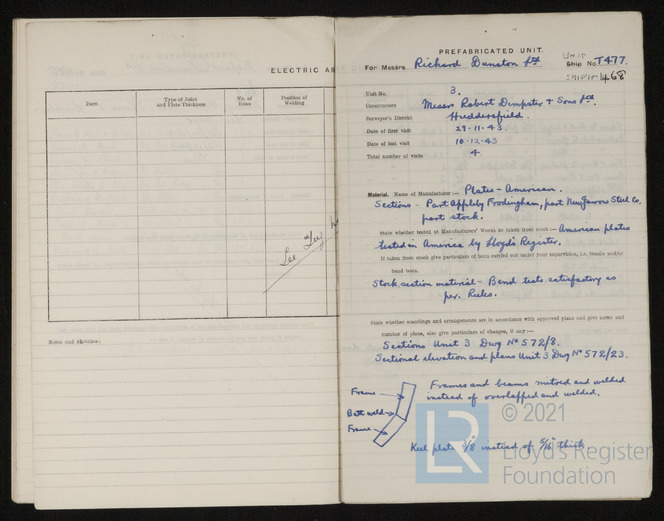 ELECTRIC AR
Date
Type of Joint
and Plate Thickness
No. of
Runs
Position of
Welding
See
Notes and sketches:
PREFABRICATED UNIT.
For Messrs. Richard Dunston Ltd
UNIT
Ship No. T477.
SHIP Nº 468
Unit No. 3.
Constructors Messrs Robert Dempster & Sons Ltd.
Surveyor's District Huddersfield.
Date of first visit 29-11-43.
Date of last visit 10-12-43
Total number of visits 4.
Material. Name of Manufacturer:— Plates - American.
Sections - Part Appleby Frodingham, part New Jarrow Steel Co.
part stock.
State whether tested at Manufacturers' Works or taken from stock:— American plates
tested in America by Lloyd's Register.
If taken from stock give particulars of tests carried out under your supervision, i.e. tensile and/or
bend tests.
Stock section material - Bend tests satisfactory as
per. Rules.
State whether scantlings and arrangements are in accordance with approved plans and give name and
number of plans, also give particulars of changes, if any:—
Sections Unit 3 Dwg Nº 572/8.
Sectional elevation and plans Unit 3 Dwg Nº 572/23.
Frame
Butt weld
Frame
Frames and beams mitred and welded
instead of overlapped and welded.
Keel plate 3/8" instead of 5/16" thick
© 2021
LR
Lloyd's Register
Foundation